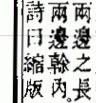 兩邊之長
兩邊榦內
詩曰縮版